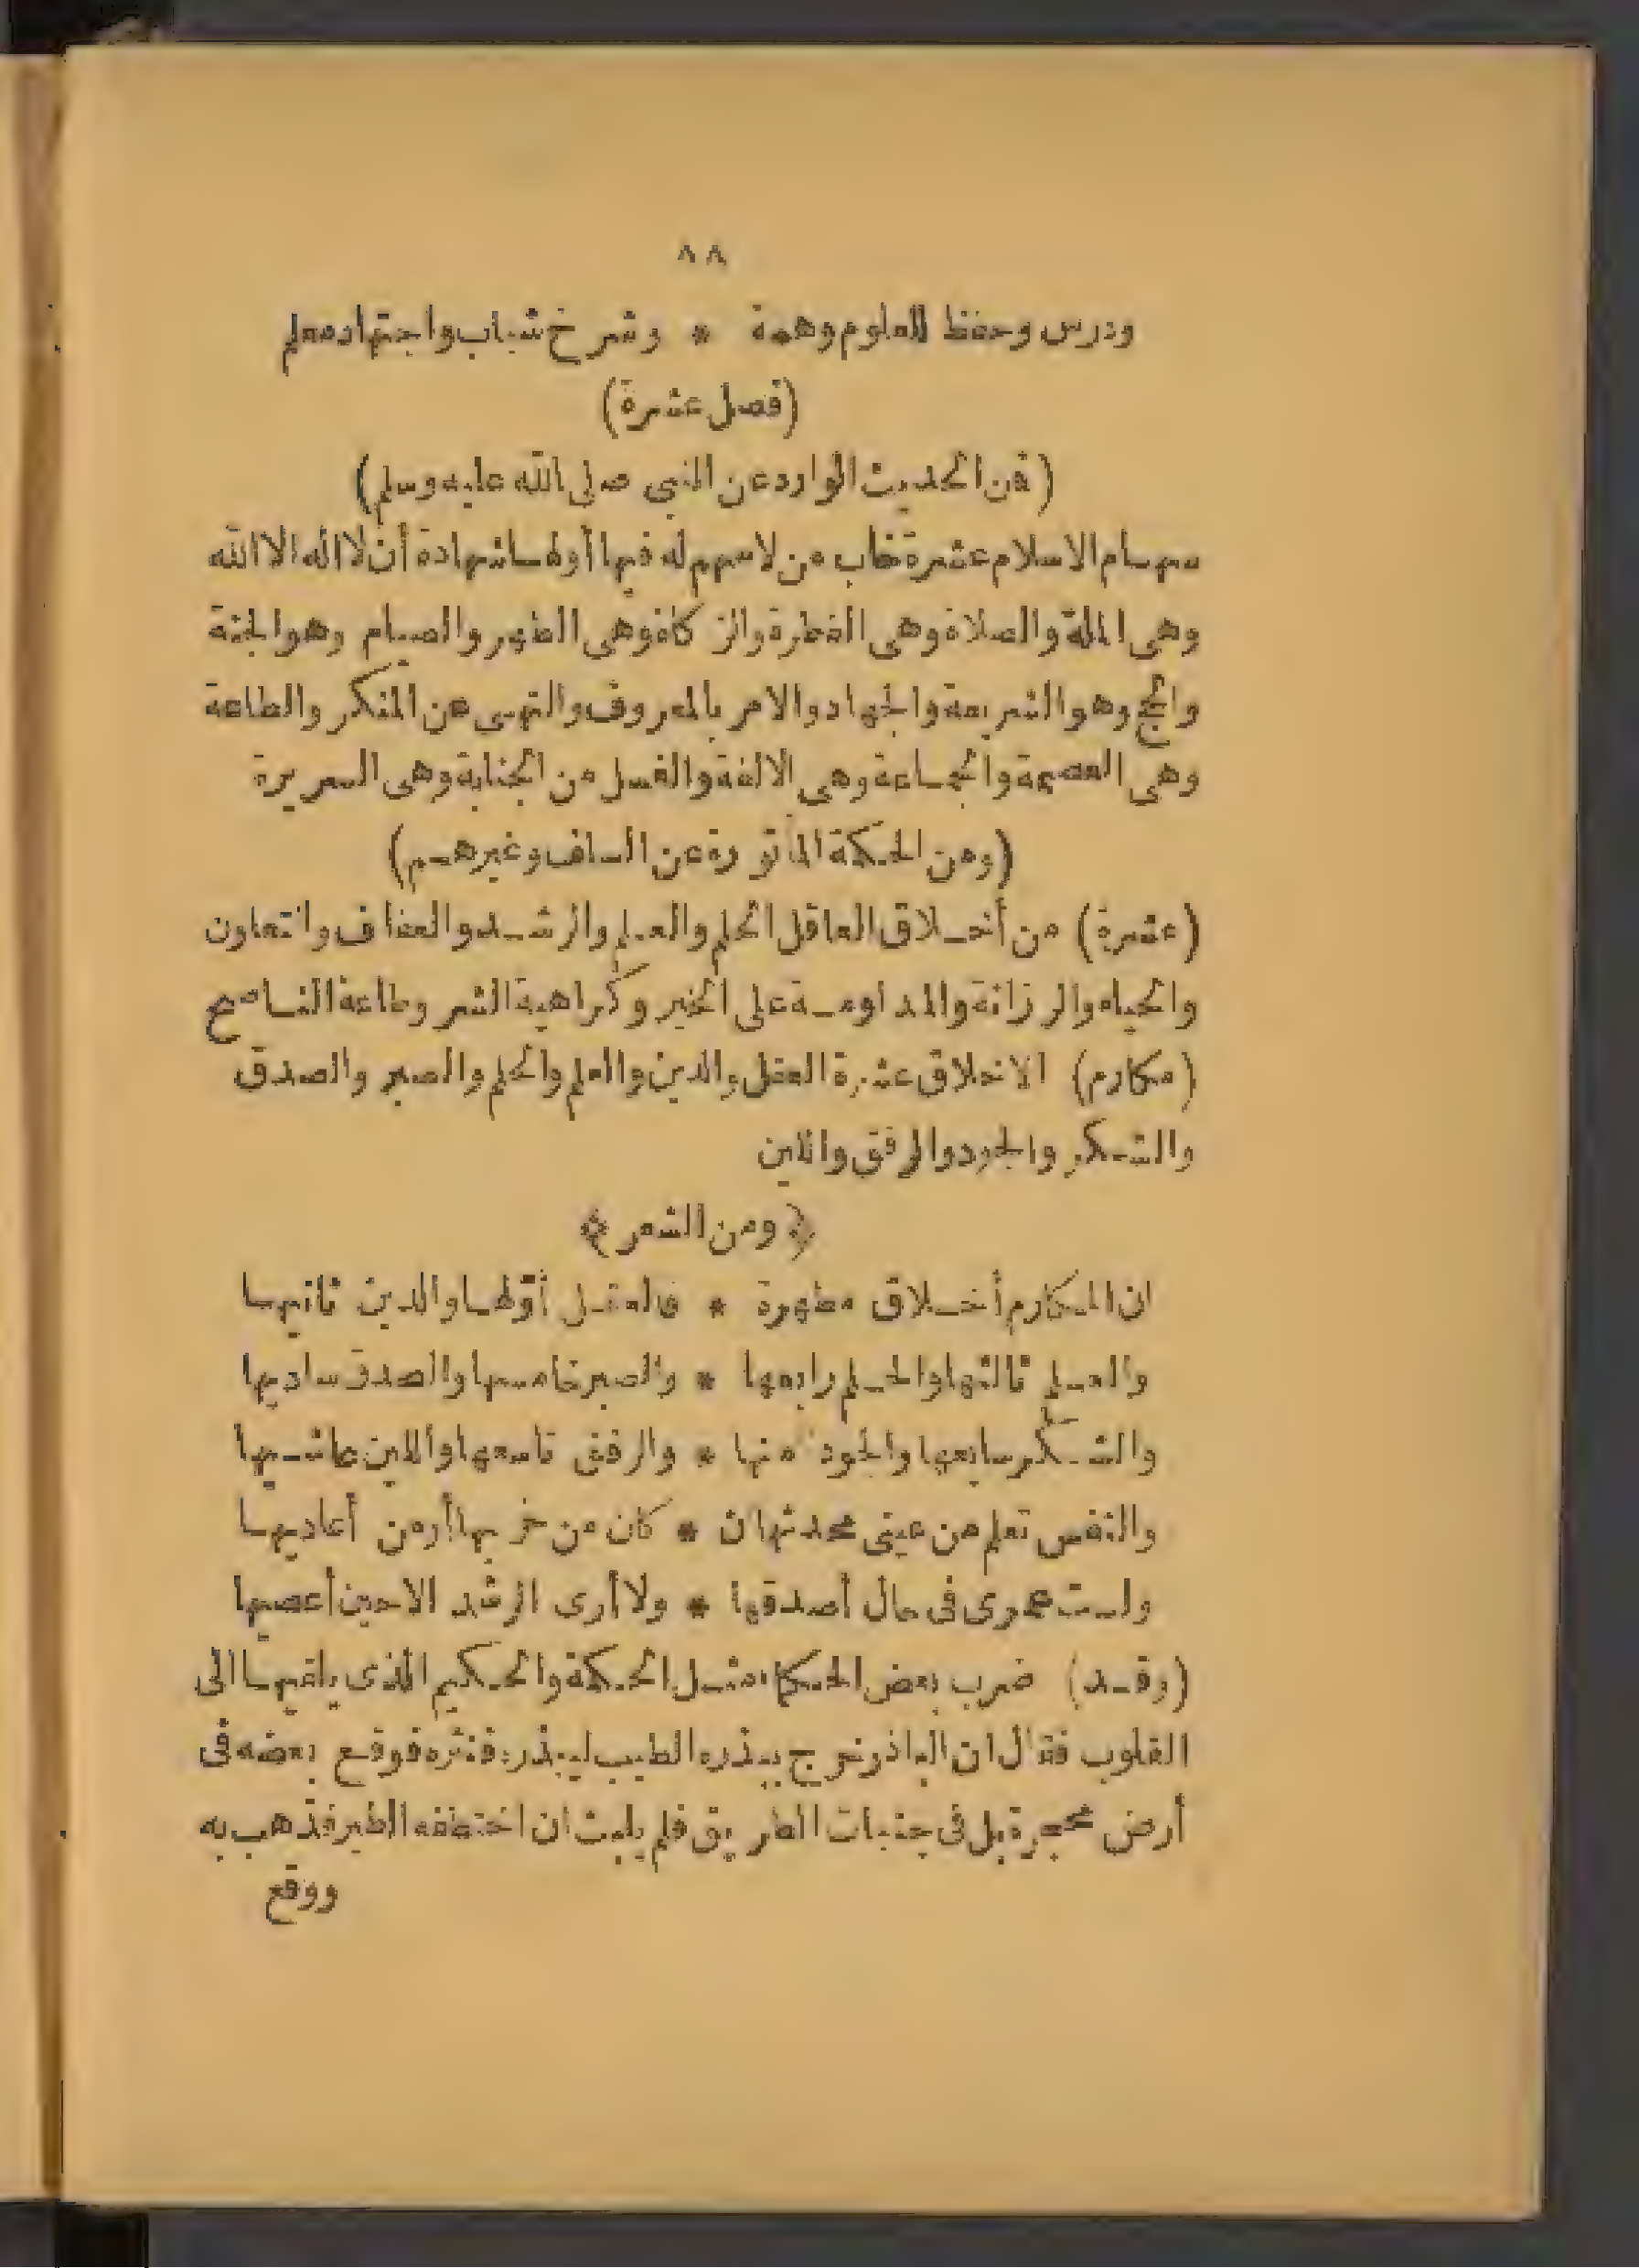 ٨٨
ودرس وحفظ للعلوم وهمة * وشرخ شباب واجتهاد معلم
(فصل عشرة)
(فن الحديث الوارد عن النبي صلى الله عليه وسلم)
سهام الاسلام عشرة خاب من لاسهم له فيها أولها شهادة أن لا اله الا الله
وهى الملة والصلاة وهى الفطرة والزكاة وهى الطهر والصيام وهو الجنة
والحج وهو الشريعة والجهاد والامر بالمعروف والنهى عن المنكر والطاعة
وهى العصمة والجماعة وهى الالفة والغسل من الجنابة وهى السريرة
(ومن الحكمة المأثورة عن السلف وغيرهم)
(عشرة) من أخلاق العاقل الحلم والعلم والرشد والعفاف والتعاون
والحياء والرزانة والمداومة على الخير وكراهية الشر وطاعة الناصح
(مكارم) الاخلاق عشرة العقل والدين والعلم والحلم والصبر والصدق
والشكر والجود والرفق واللين
﴿ومن الشعر﴾
ان المكارم أخلاق مطهرة * فالعقل أولها والدين ثانيها
والعلم ثالثها والحلم رابعها * والصبر خامسها والصدق ساديها
والشكر سابعها والجود منها * والرفق تاسعها واللين عاشيها
والنفس تعلم من عينى محدثها ان * كان من حزبها أومن أعاديها
ولست عمرى فى حال أصدقها * ولا أرى الرشد الا حين أعصيها
(وقد) ضرب بعض الحكماء مثل الحكمة والحكيم الذى يلقيها الى
القلوب فقال ان الباذر خرج ببذره الطيب ليبذره فنثره فوقع بعضه فى
أرض محجرة بل فى جنبات الطريق فلم يلبث ان اختطفه الطير فذهب به
ووقع